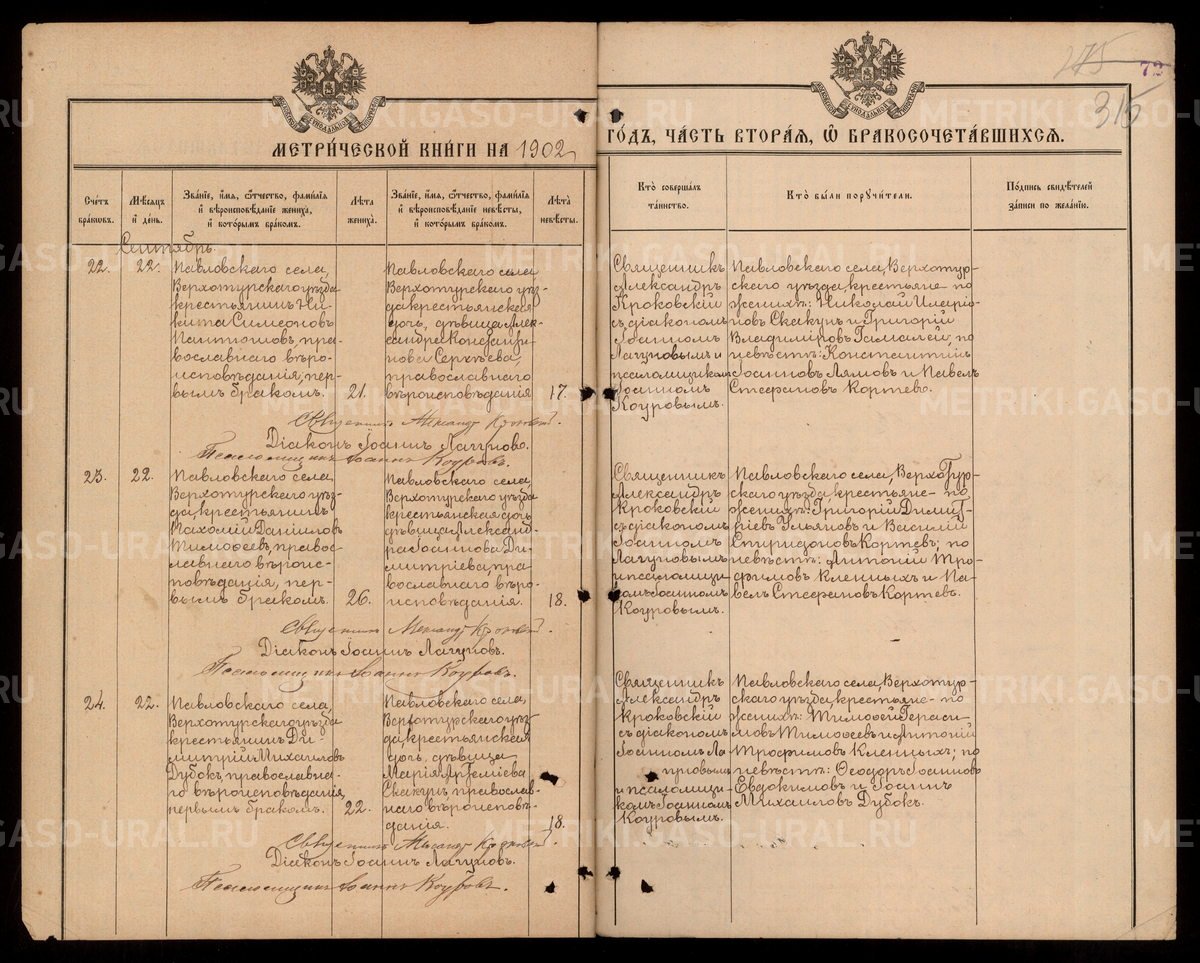 275
72
315
МЕТРИ́ЧЕСКОЙ КНИ́ГИ НА 1902
ГО́ДЪ, ЧА́СТЬ ВТОРА́Я, Ѿ БРАКОСОЧЕТА́ВШИХСЯ.
Счетъ браковъ.
Мѣсяцъ и день.
Званіе, имя, отчество, фамилія и вѣроисповѣданіе жениха, и которымъ бракомъ.
Лѣта жениха.
Званіе, имя, отчество, фамилія и вѣроисповѣданіе невѣсты, и которымъ бракомъ.
Лѣта невѣсты.
Кто совершалъ таинство.
Кто были поручители.
Подпись свидѣтелей записи по желанію.
Сентябрь.
22.
22.
Павловскаго села,
Верхотурскаго уѣзда
крестьянинъ Ни-
кита Симеоновъ
пра-
вославнаго вѣро-
исповѣданія, пер-
вымъ бракомъ.
21.
Павловскаго села,
Верхотурскаго уѣз-
да крестьянская
дочь, дѣвица Алек-
сандра Константи-
нова Сергѣева,
православнаго
вѣроисповѣданія
17.
Священникъ
Александръ
Кроковскій
съ діакономъ
Іоанномъ
Лагуновымъ и
псаломщикомъ
Іоанномъ
Коуровымъ.
Павловскаго села, Верхотур-
скаго уѣзда, крестьяне по
женихѣ: Николай Иларіо-
новъ Скакунъ и Григорій
Владиміровъ Гамалей, по
невѣстѣ: Константинъ
Іоанновъ Лямовъ и Павелъ
Стефановъ Кортевъ.
Священникъ Александръ Кроковскій.
Діаконъ Іоаннъ Лагуновъ.
Псаломщикъ Іоаннъ Коуровъ.
23.
22.
Павловскаго села,
Верхотурскаго уѣз-
да, крестьянинъ
Пахомій Даніиловъ
Тимофеевъ, правос-
лавнаго вѣроис-
повѣданія, пер-
вымъ бракомъ.
26.
Павловскаго села,
Верхотурскаго уѣзда
крестьянская дочь,
дѣвица Александ-
ра Іоаннова Ди-
митріева, пра-
вославнаго вѣро-
исповѣданія.
18.
Священникъ
Александръ
Кроковскій
съ діакономъ
Іоанномъ
Лагуновымъ
и псаломщи-
комъ Іоанномъ
Коуровымъ.
Павловскаго села, Верхотур-
скаго уѣзда, крестьяне- по
женихѣ: Григорій Димит-
ріевъ Ульяновъ и Василій
Спиридоновъ Кортевъ; по
невѣстѣ: Антоній Тро-
фимовъ Кленцыхъ и Па-
велъ Стефановъ Кортевъ.
Священникъ Александръ Кроковскій.
Діаконъ Іоаннъ Лагуновъ.
Псаломщикъ Іоаннъ Коуровъ.
24.
22.
Павловскаго села,
Верхотурскаго уѣзда
крестьянинъ Ди-
митрій Михаиловъ
Дубокъ, православна-
го вѣроисповѣданія,
первымъ бракомъ.
22.
Павловскаго села,
Верхотурскаго уѣз-
да, крестьянская
дочь, дѣвица
Марія Артеміева
Скакунъ православ-
наго вѣроисповѣ-
данія.
18.
Священникъ
Александръ
Кроковскій
съ діакономъ
Іоанномъ Ла-
гуновымъ
и псаломщи-
комъ Іоанномъ
Коуровымъ.
Павловскаго села, Верхотур-
скаго уѣзда, крестьяне- по
женихѣ: Тимофей Гераси-
мовъ Тимофеевъ и Антоній
Трофимовъ Кленцыхъ; по
невѣстѣ: Ѳеодоръ Іоанновъ
Евдокимовъ и Іоаннъ
Михаиловъ Дубокъ.
Священникъ Александръ Кроковскій.
Діаконъ Іоаннъ Лагуновъ.
Псаломщикъ Іоаннъ Коуровъ.
METRIKI.GASO-URAL.RU